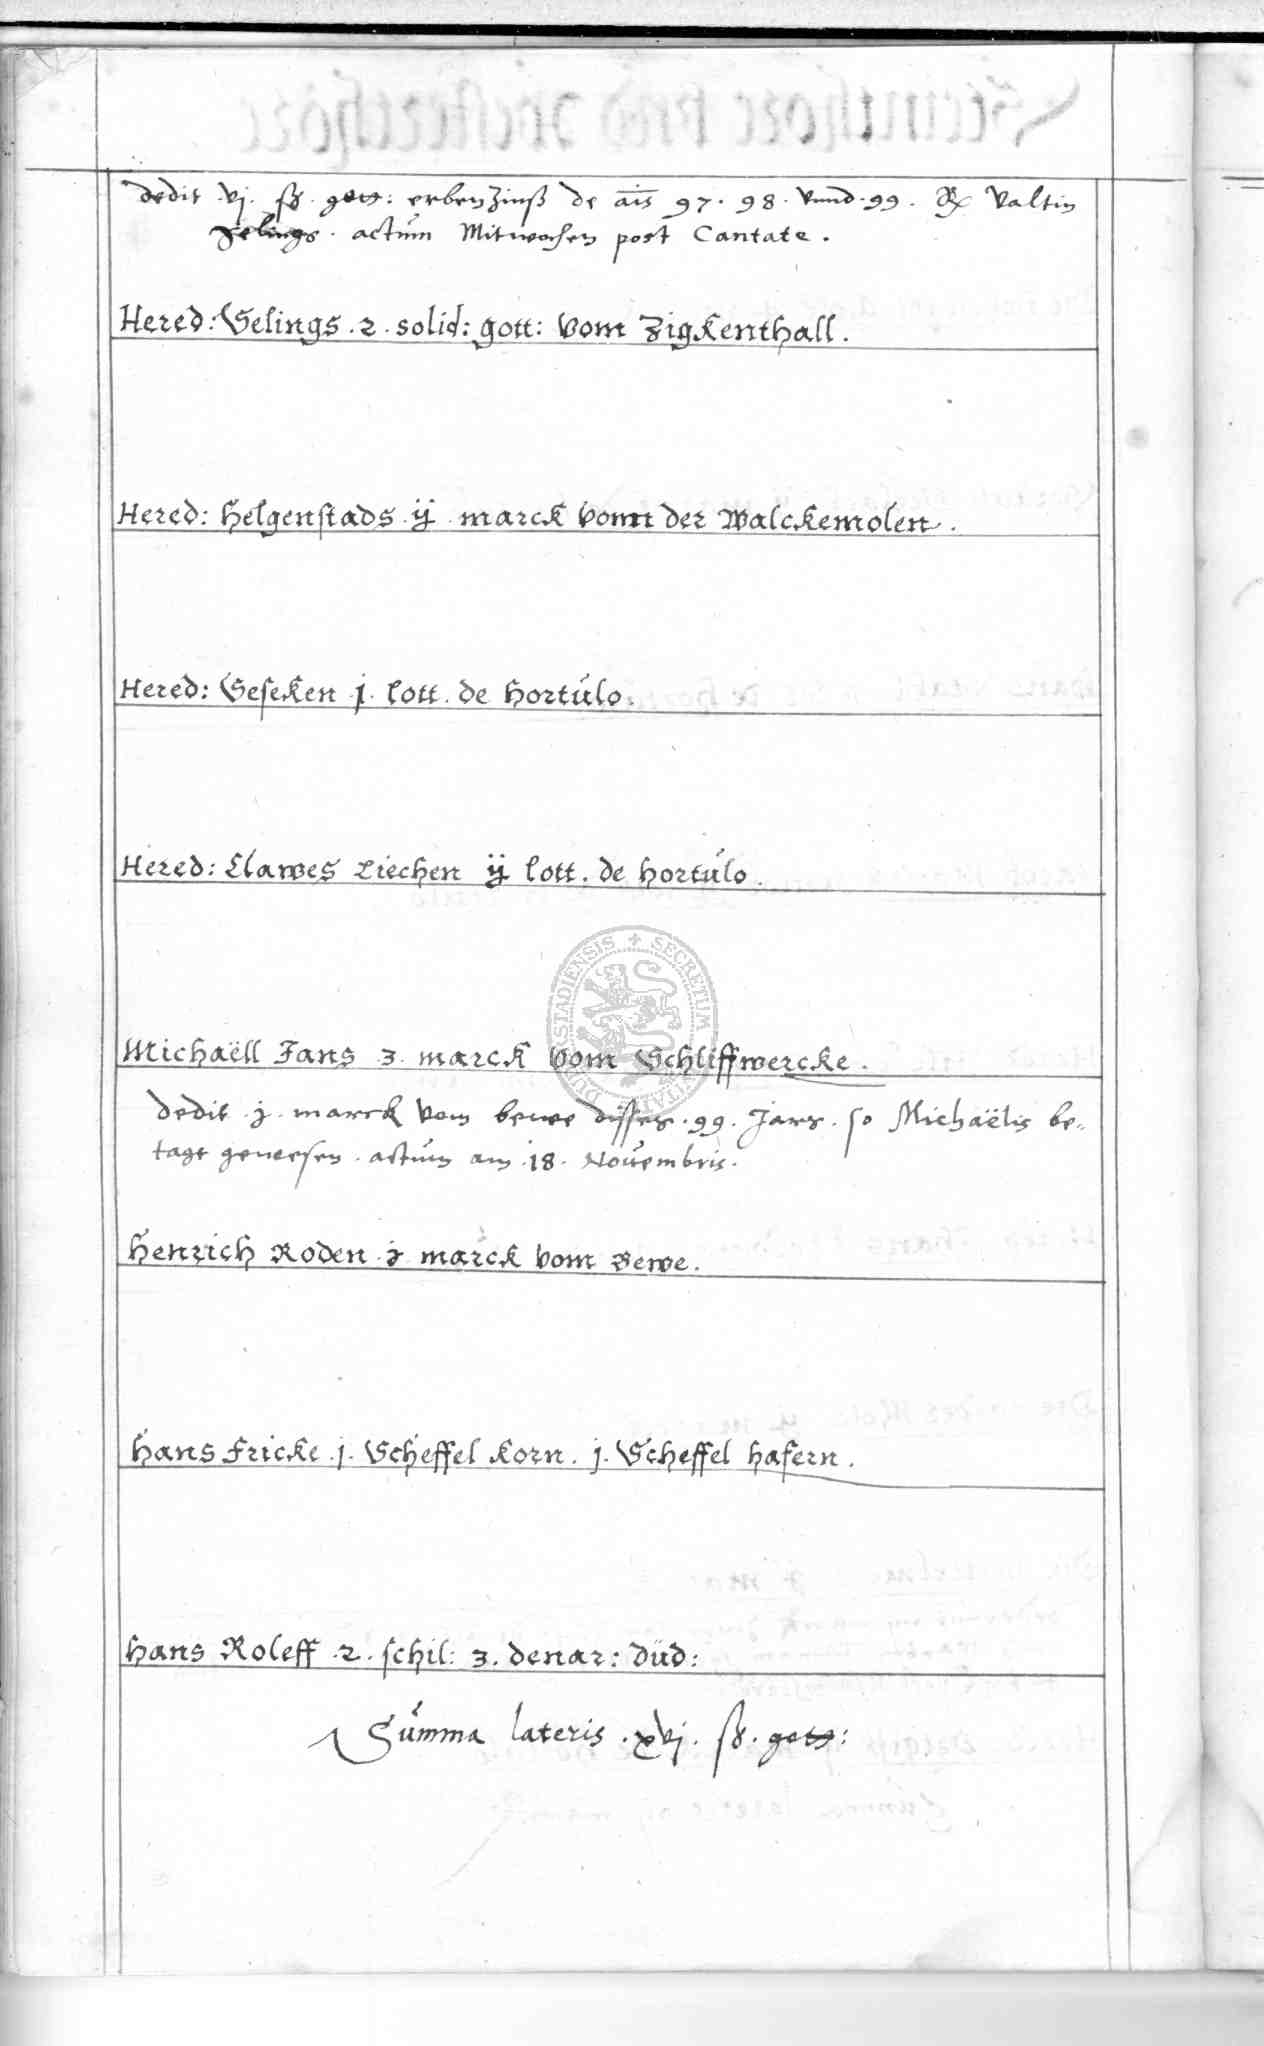 dedit .vj. ß. gott: erbenZinß de ais 97. 98. vnnd .99. Rx Valtin
Selings. actum Mitwochen post Cantate.
Hered: Selings .2. solid: gott: vom Zigkenthall.
Hered: helgenstads ij marck vonn der Walckemolen.
Hered: Seseken .j. lott. de hortulo.
Hered: Clawes Ziechen ij lott. de hortulo.
SECRETUM
Michaëll Jans 3. marck vom Schliffwercke.
dedit .j. marck vom bewe disses .99. Jars. so Michaëlis be-
tagt gewesen. actum am .18. Novembris.
Henrich Roden .j. marck vom Bewe.
Hans Fricke .j. Scheffel korn. j. Scheffel hafern.
Hans Roleff .2. schil: 3. denar: düd:
Summa lateris .xvj. ß. gott: